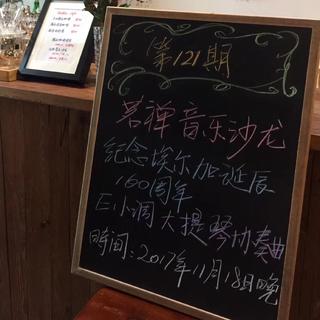 第121期
茗禅音乐沙龙
纪念埃尔加诞辰
160周年
E小调大提琴协奏曲
时间:2017年11月18日晚